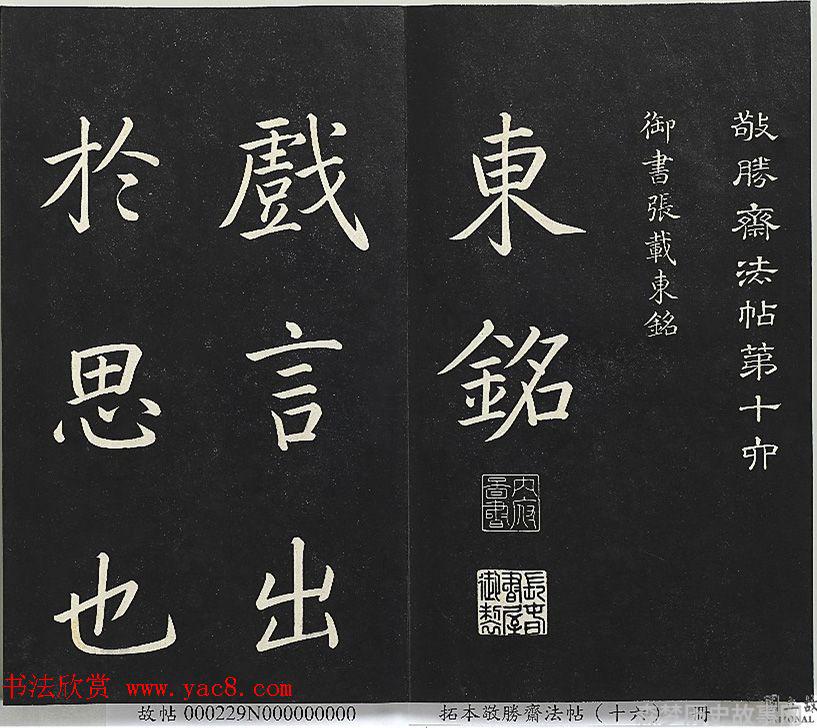 敬勝齋法帖第十六
御書張載東銘
東銘
戲言出
於思也
書法欣赏 www.yac8.com
故帖 000229N000000000
拓本敬勝齋法帖（十六） 冊